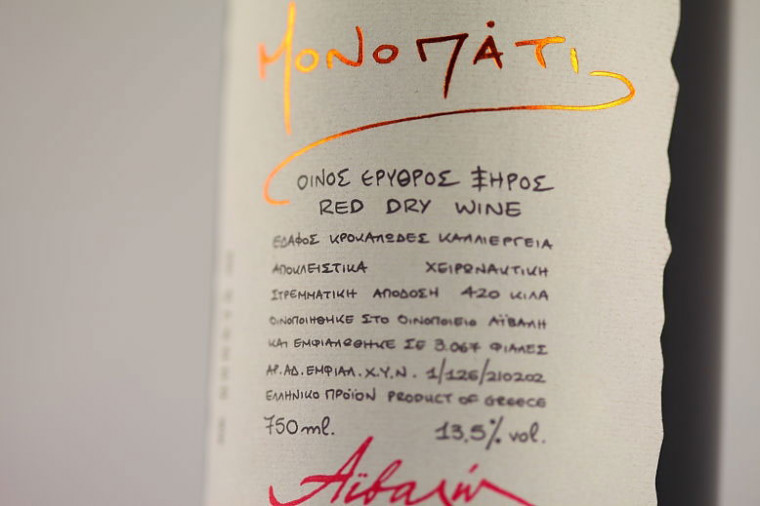 ΜΟΝΟΠΑΤΙ
ΟΙΝΟΣ ΕΡΥΘΡΟΣ ΞΗΡΟΣ
RED DRY WINE
ΕΔΑΦΟΣ ΚΡΟΚΑΛΩΔΕΣ ΚΑΛΛΙΕΡΓΕΙΑ
ΑΠΟΚΛΕΙΣΤΙΚΑ ΧΕΙΡΩΝΑΚΤΙΚΗ
ΣΤΡΕΜΜΑΤΙΚΗ ΑΠΟΔΟΣΗ 420 ΚΙΛΑ
ΟΙΝΟΠΟΙΗΘΗΚΕ ΣΤΟ ΟΙΝΟΠΟΙΕΙΟ ΑΪΒΑΛΗ
ΚΑΙ ΕΜΦΙΑΛΩΘΗΚΕ ΣΕ 3.067 ΦΙΑΛΕΣ
ΑΡ.ΑΔ.ΕΜΦΙΑΛ.Χ.Υ.Ν. 1/126/210202
ΕΛΛΗΝΙΚΟ ΠΡΟΪΟΝ PRODUCT OF GREECE
750 ml. 13,5% vol.
Αϊβαλής